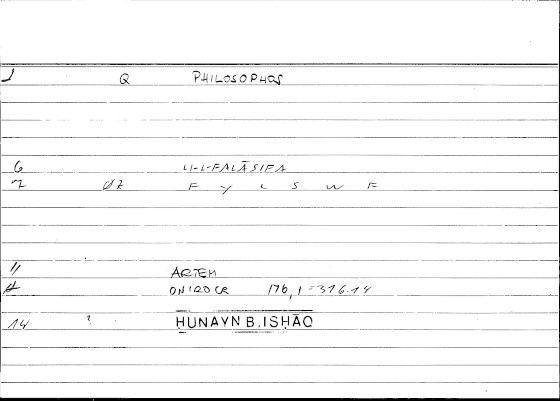 1 Q PHILOSOPHOS
6 LI-L-FALĀSIFA
7 UZ F Y L S W F
11 ARTEM
ONIROCR 176,1 = 316.14
14 ? HUNAYN B.ISHĀQ